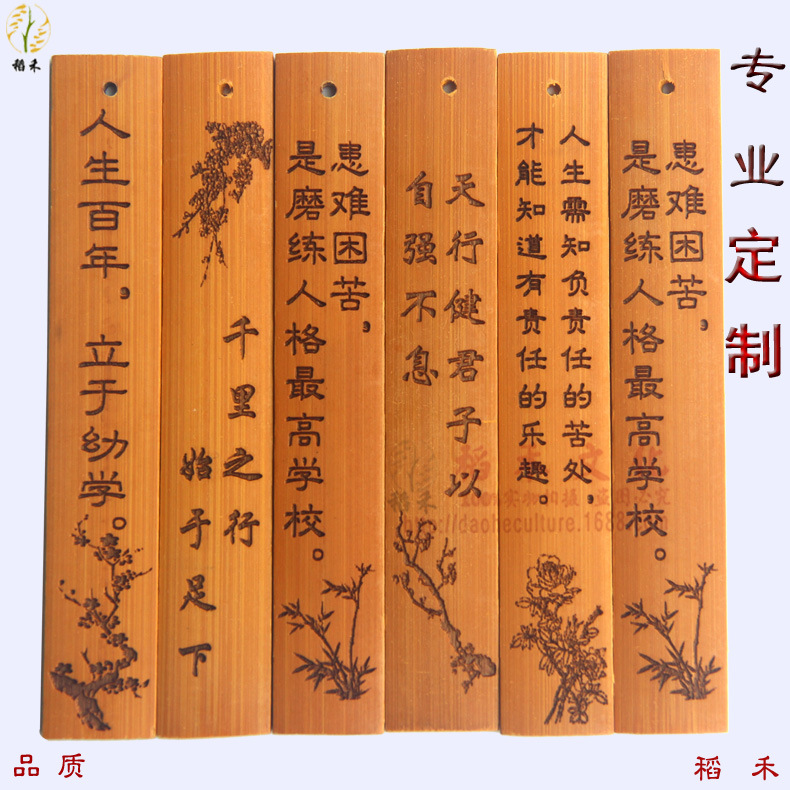 稻禾
专业定制
人生百年，立于幼学。
千里之行
始于足下
患难困苦，
是磨练人格最高学校。
天行健君子以
自强不息
人生需知负责任的苦处，
才能知道有责任的乐趣。
患难困苦，
是磨练人格最高学校。
稻禾
http://daoheculture.1688
品质
稻禾